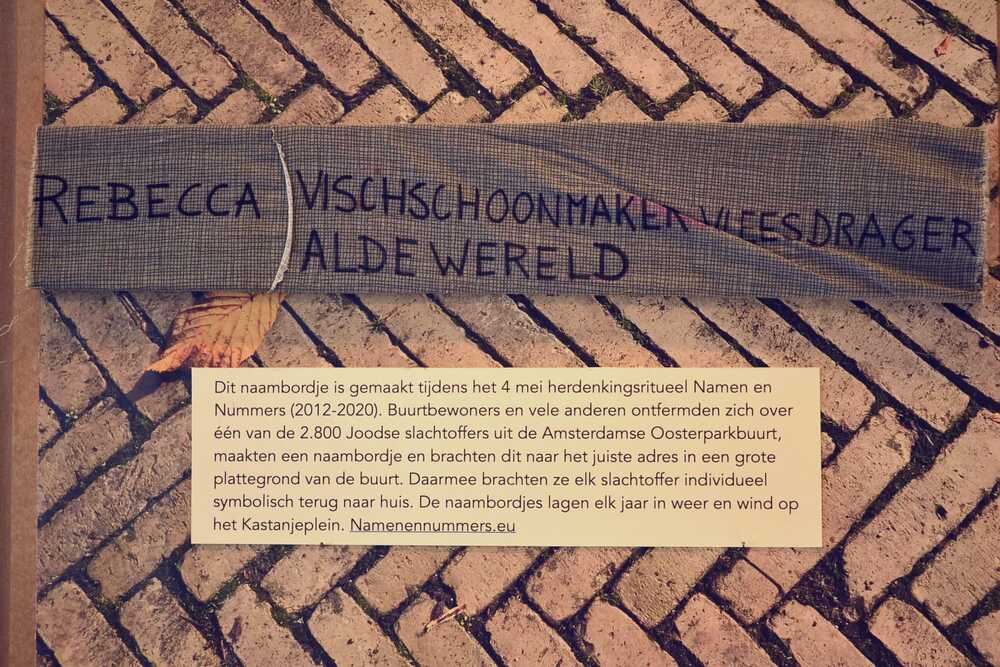 REBECCA VISCHSCHOONMAKER VLEESDRAGER
ALDEWERELD
Dit naambordje is gemaakt tijdens het 4 mei herdenkingsritueel Namen en
Nummers (2012-2020). Buurtbewoners en vele anderen ontfermden zich over
één van de 2.800 Joodse slachtoffers uit de Amsterdamse Oosterparkbuurt,
maakten een naambordje en brachten dit naar het juiste adres in een grote
plattegrond van de buurt. Daarmee brachten ze elk slachtoffer individueel
symbolisch terug naar huis. De naambordjes lagen elk jaar in weer en wind op
het Kastanjeplein. Namenennummers.eu